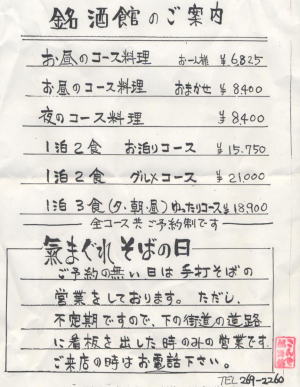 銘酒館のご案内
お昼のコース料理 お一人様 ¥6,825
お昼のコース料理 おまかせ ¥8,400
夜のコース料理 ¥8,400
1泊2食 お泊りコース ¥15,750
1泊2食 グルメコース ¥21,000
1泊3食(夕・朝・昼)ゆったりコース ¥18,900
全コース共ご予約制です
氣まぐれそばの日
ご予約の無い日は手打そばの
営業をしております。ただし、
不定期ですので、下の街道の道路
に看板を出した時のみの営業です
ご来店の時はお電話下さい。
TEL 269-2260